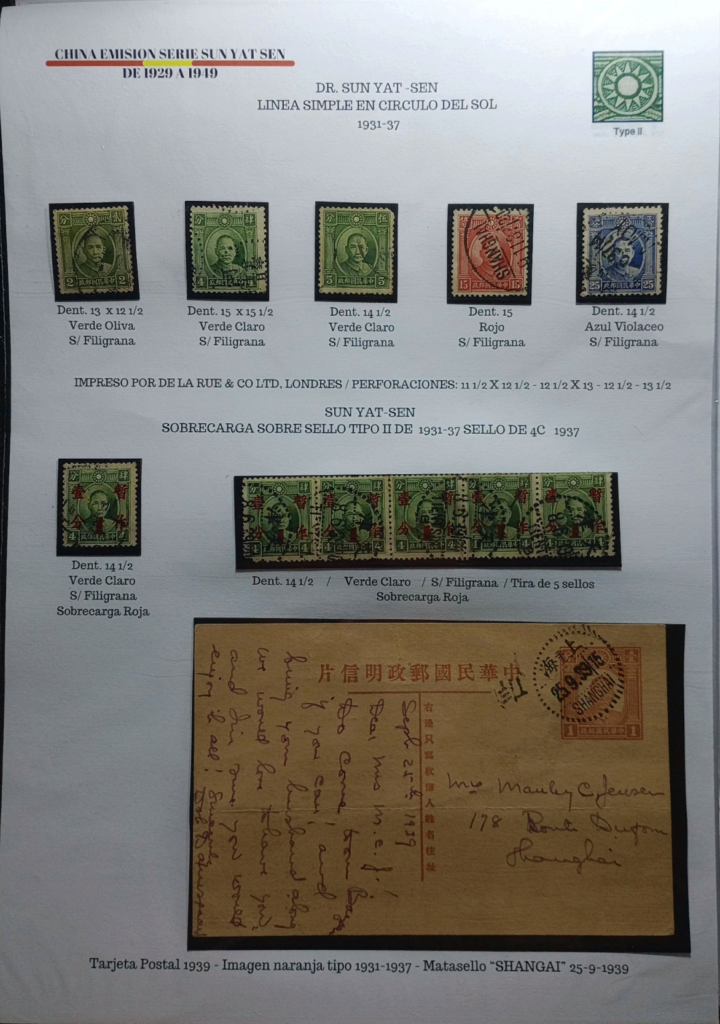 CHINA EMISION SERIE SUN YAT SEN
DE 1929 A 1949
DR. SUN YAT -SEN
LINEA SIMPLE EN CIRCULO DEL SOL
1931-37
Type II
分 貳
2 2
分 肆
4
分 伍
5 5
15 15
25 25
Dent. 13 x 12 1/2
Verde Oliva
S/ Filigrana
Dent. 15 x 15 1/2
Verde Claro
S/ Filigrana
Dent. 14 1/2
Verde Claro
S/ Filigrana
Dent. 15
Rojo
S/ Filigrana
Dent. 14 1/2
Azul Violaceo
S/ Filigrana
IMPRESO POR DE LA RUE & CO LTD, LONDRES / PERFORACIONES: 11 1/2 X 12 1/2 - 12 1/2 X 13 - 12 1/2 - 13 1/2
SUN YAT-SEN
SOBRECARGA SOBRE SELLO TIPO II DE 1931-37 SELLO DE 4C 1937
暫
作
壹
分
Dent. 14 1/2
Verde Claro
S/ Filigrana
Sobrecarga Roja
Dent. 14 1/2 / Verde Claro / S/ Filigrana / Tira de 5 sellos
Sobrecarga Roja
片信明政郵國民華中
上海
25.9.39
SHANGHAI
1 1
右邊只寫收信人姓名住址
Sept 25th 1939
Dear Mrs M.C.J.!
Do come
if you can, and
bring your husband along
we would love to have you
and I'm sure you would
enjoy it all!
Mrs Manley C. Jensen
178 Route Dufour
Shanghai
Tarjeta Postal 1939 - Imagen naranja tipo 1931-1937 - Matasello "SHANGAI" 25-9-1939